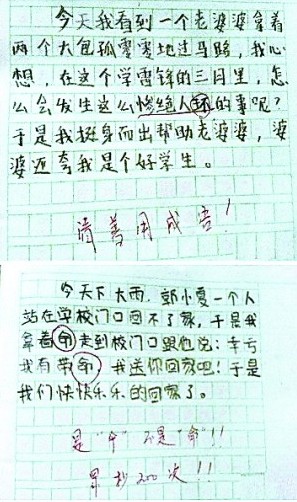 今天我看到一个老婆婆拿着
两个大包孤零零地过马路，我心
想，在这个学雷锋的三月里，怎
么会发生这么惨绝人环的事呢？
于是我挺身而出帮助老婆婆，婆
婆还夸我是个好学生。
请善用成语！
今天下大雨，郭小雯一个人
站在学校门口回不了家，于是我
拿着命走到校门口跟他说：幸亏
我有带命，我送你回家吧！于是
我们快快乐乐的回家了。
是“伞”不是“命”!!
罚抄200次!!